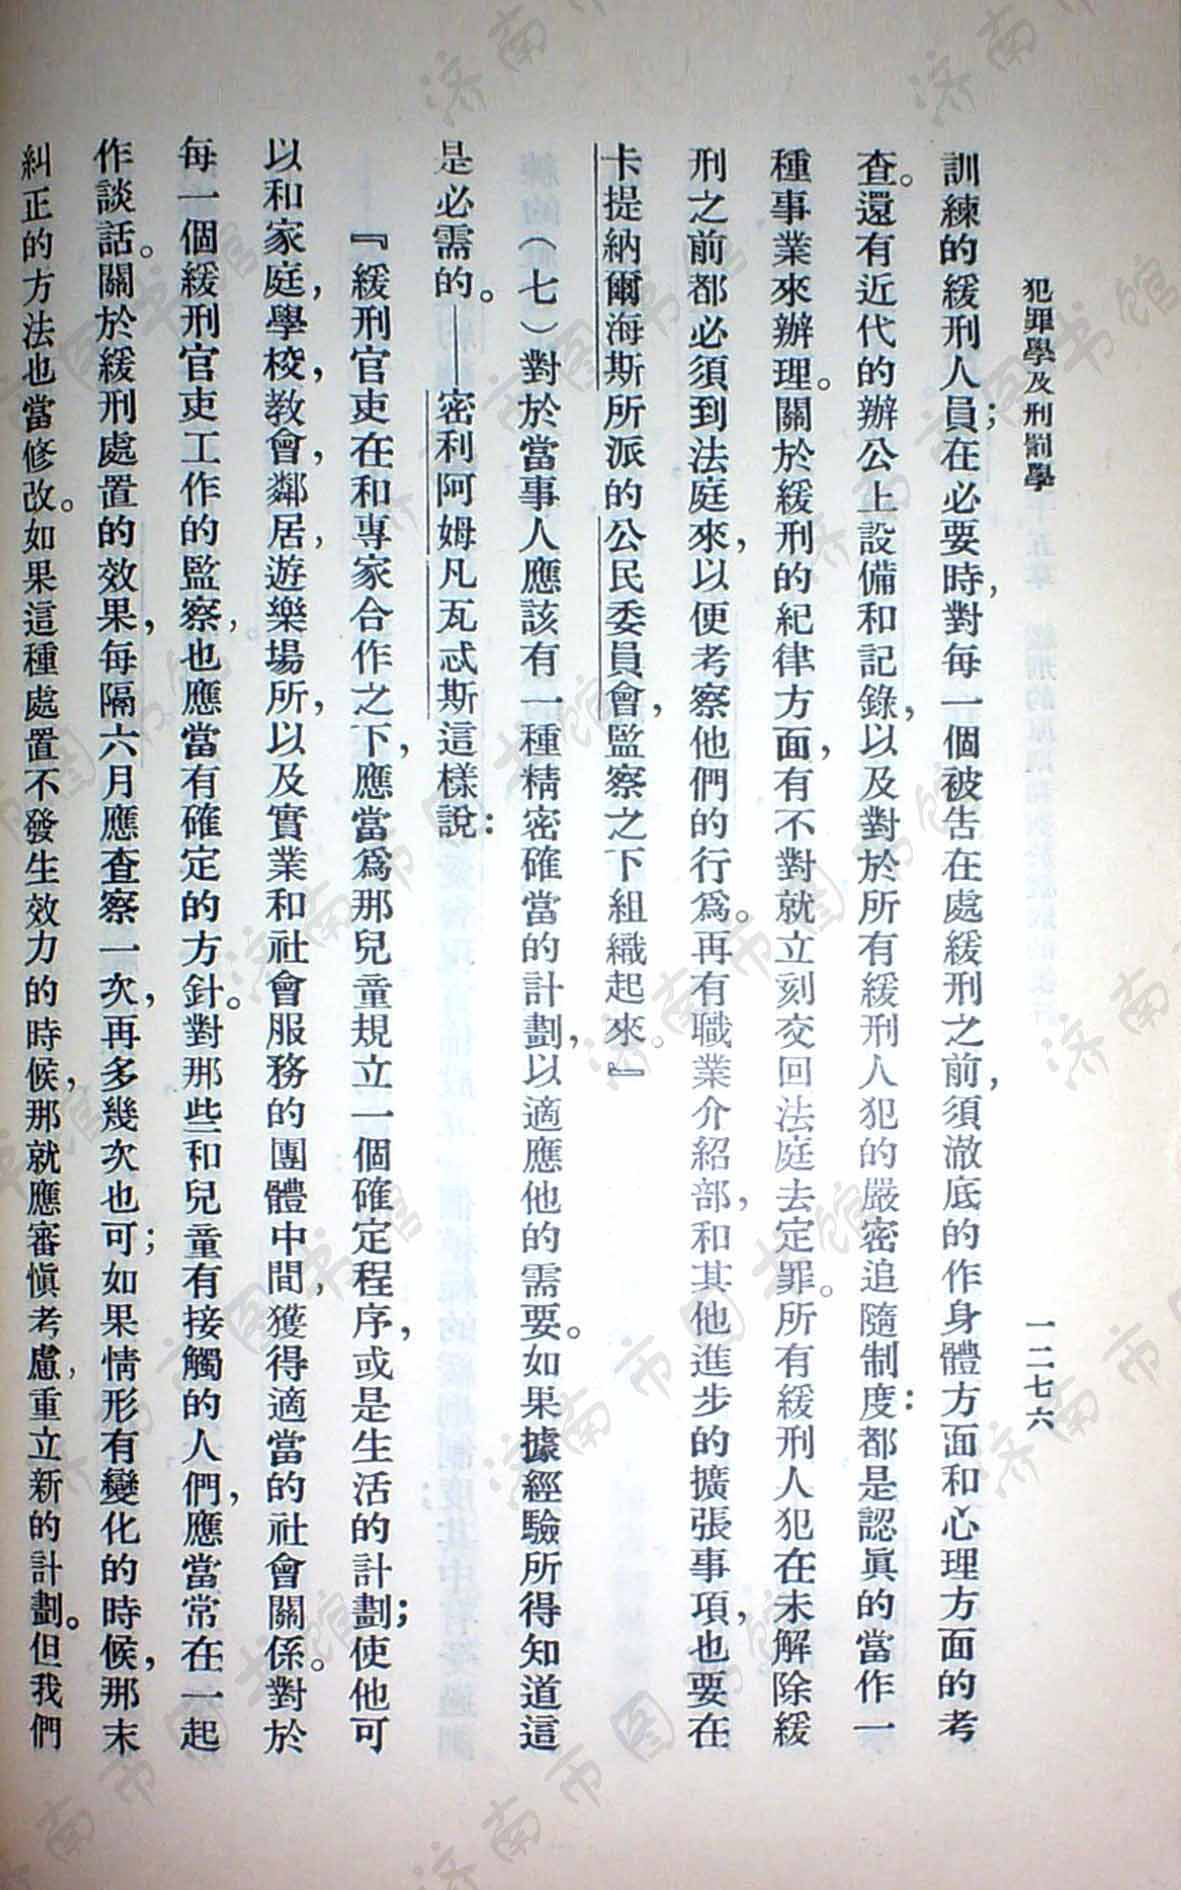 犯罪學及刑罰學
一二七六
訓練的緩刑人員；在必要時，對每一個被告在處緩刑之前，須澈底的作身體方面和心理方面的考
查。還有近代的辦公上設備和記錄，以及對於所有緩刑人犯的嚴密追隨制度：都是認眞的當作一
種事業來辦理。關於緩刑的紀律方面，有不對就立刻交回法庭去定罪。所有緩刑人犯在未解除緩
刑之前都必須到法庭來，以便考察他們的行爲。再有職業介紹部，和其他進步的擴張事項，也要在
卡提納爾海斯所派的公民委員會，監察之下組織起來。』
（七）對於當事人應該有一種精密確當的計劃，以適應他的需要。如果據經驗所得知道這
是必需的。——密利阿姆凡瓦忒斯這樣說：
『緩刑官吏在和專家合作之下，應當爲那兒童規立一個確定程序，或是生活的計劃；使他可
以和家庭，學校，教會，鄰居，遊樂場所，以及實業和社會服務的團體中間，獲得適當的社會關係。對於
每一個緩刑官吏工作的監察，也應當有確定的方針。對那些和兒童有接觸的人們，應當常在一起
作談話。關於緩刑處置的效果，每隔六月應查察一次，再多幾次也可；如果情形有變化的時候，那末
糾正的方法也當修改。如果這種處置不發生效力的時候，那就應審愼考慮，重立新的計劃。但我們
济南市图书馆